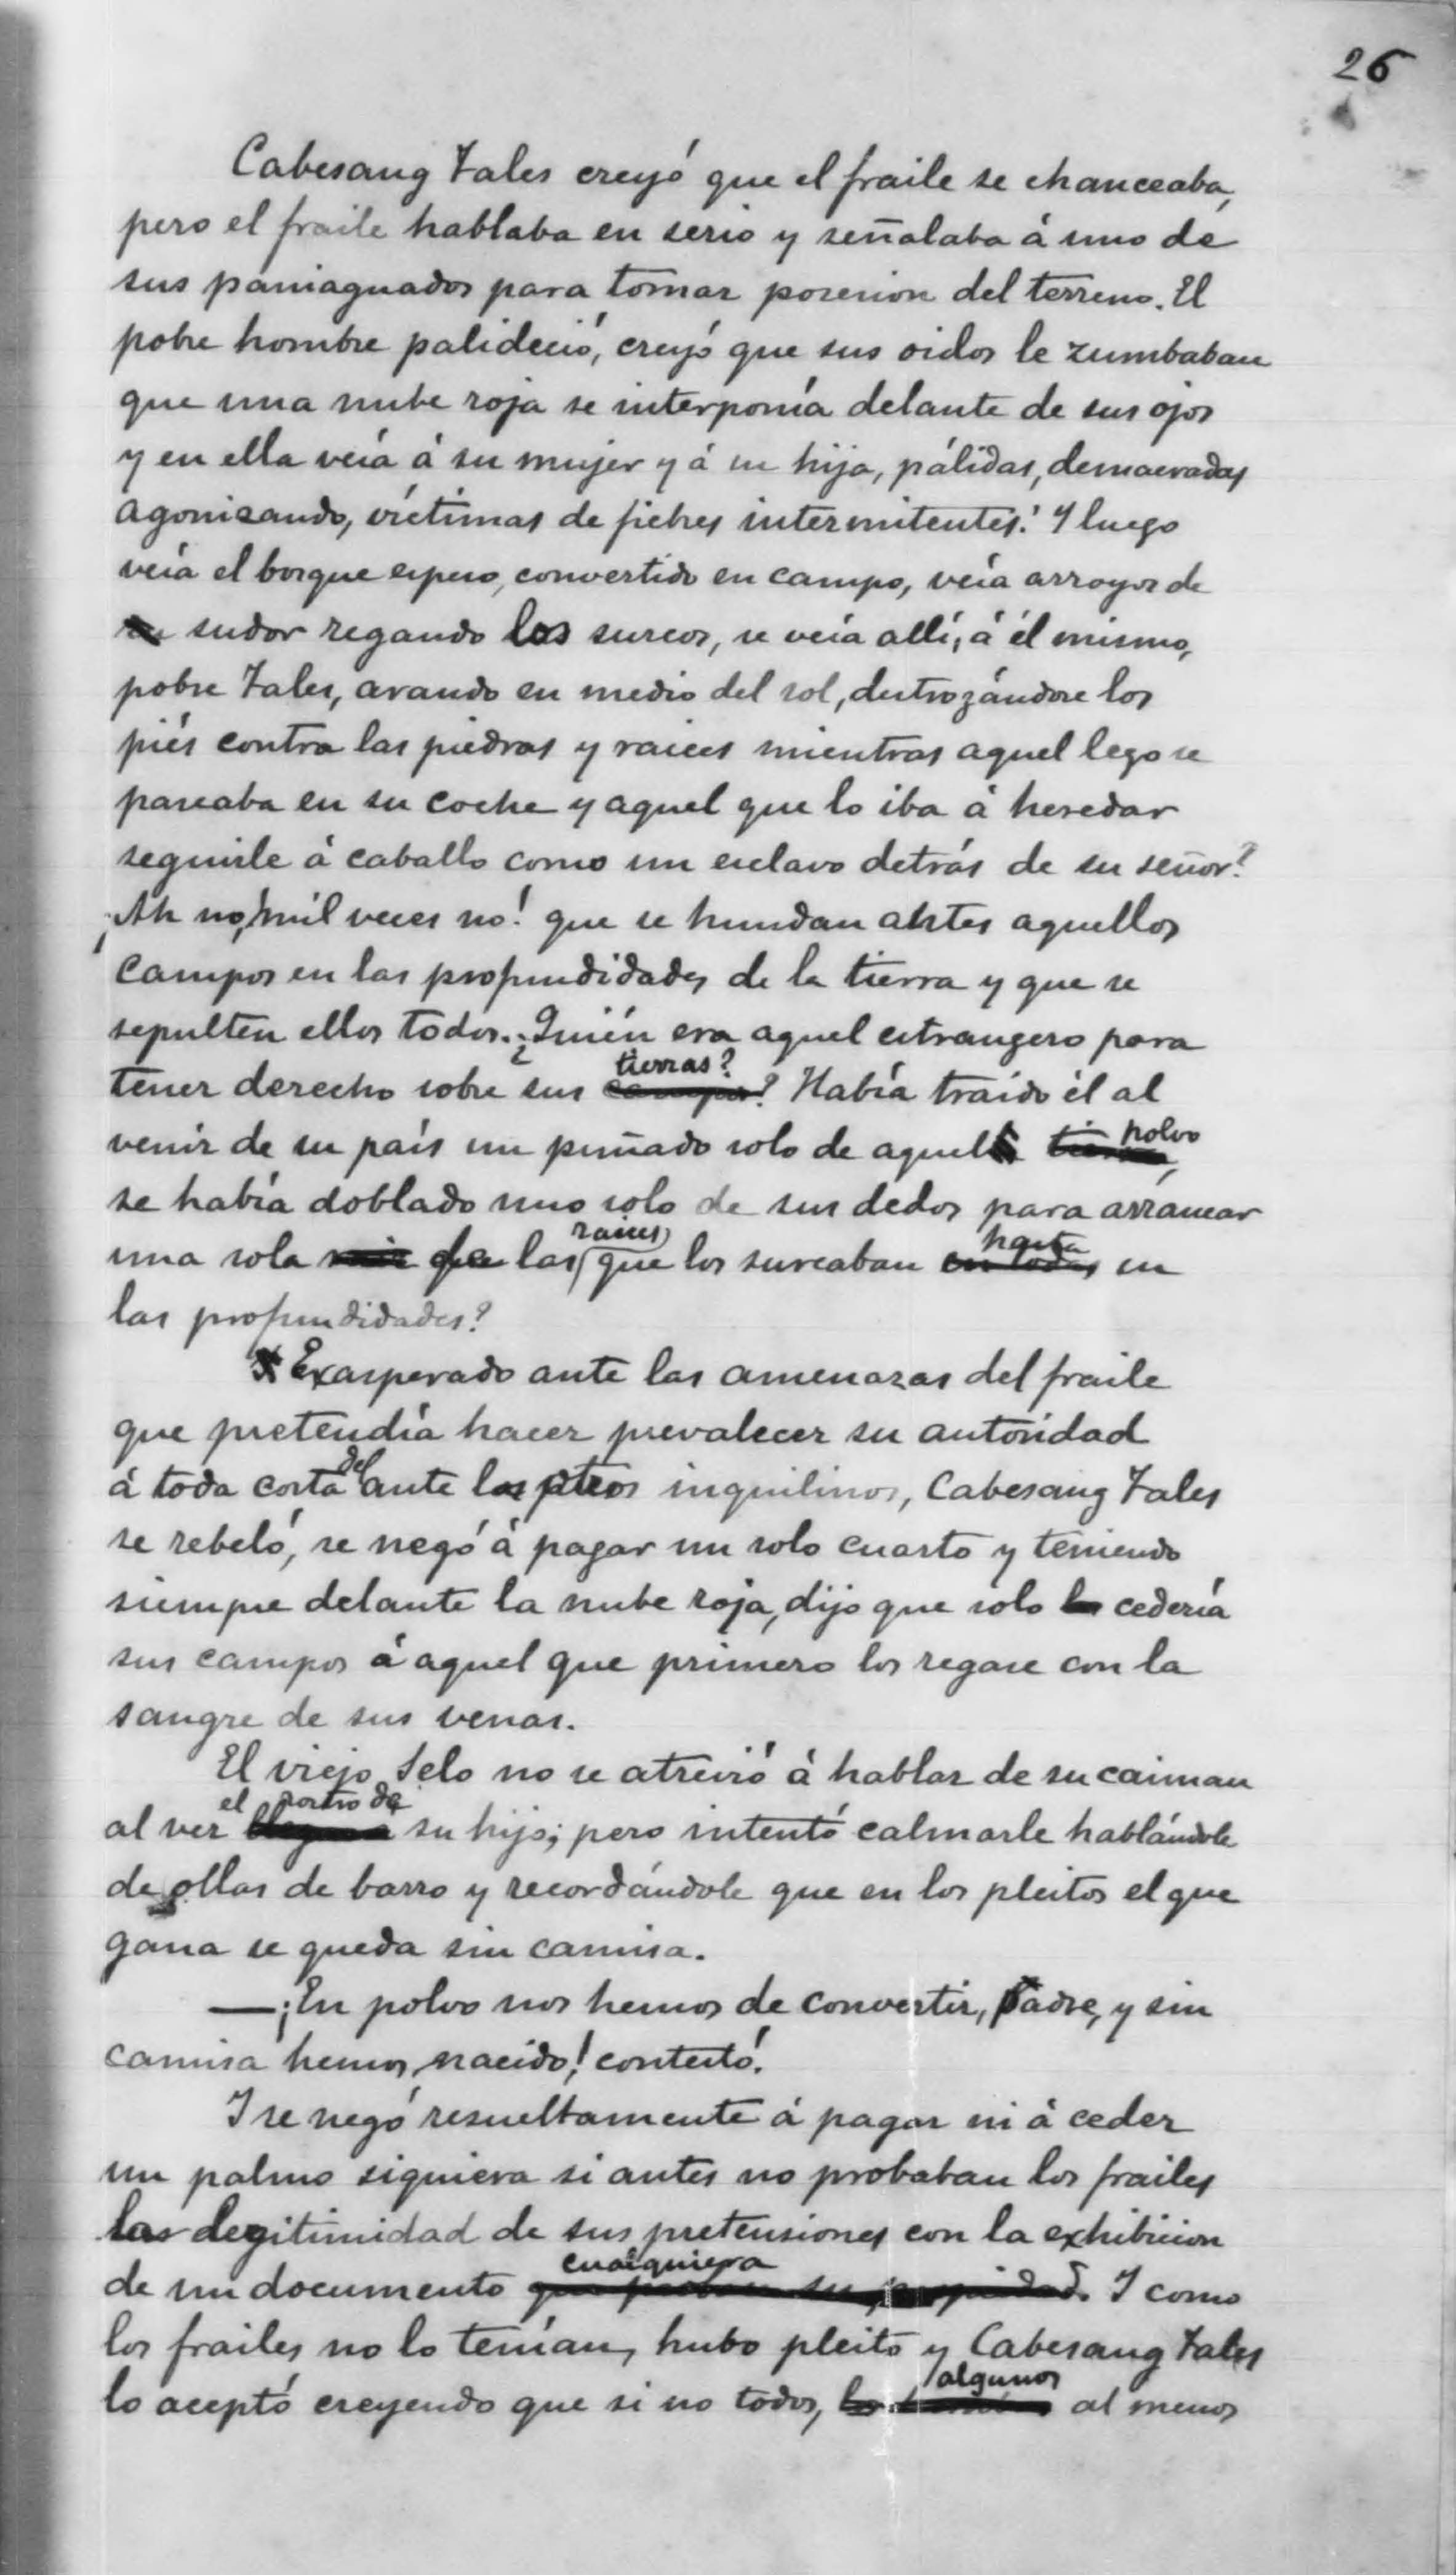 26
Cabesang Tales creyó que el fraile se chanceaba,
pero el fraile hablaba en serio y señalaba á uno de
sus paniaguados para tomar posesion del terreno. El
pobre hombre palideció, creyó que sus oidos le zumbaban
que una nube roja se interponía delante de sus ojos
y en ella veía á su mujer y á su hija, pálidas, demacradas
agonizando, víctimas de fiebres intermitentes! Y luego
veía el bosque espeso, convertido en campo, veía arroyos de
sudor regando los surcos, se veía allí, á él mismo,
pobre Tales, arando en medio del sol, destrozándose los
piés contra las piedras y raices mientras aquel lego se
paseaba en su coche y aquel que lo iba á heredar
seguirle á caballo como un esclavo detrás de su señor?
¡Ah no, mil veces no! que se hundan antes aquellos
campos en las profundidades de la tierra y que se
sepulten ellos todos. ¿Quién era aquel estrangero para
tierras?
tener derecho sobre sus campos? Había traido él al
polvo
venir de su país un puñado solo de aquel tierra,
se había doblado uno solo de sus dedos para arrancar
raices hasta
una sola de las que los surcaban en todas en
las profundidades?
Exasperado ante las amenazas del fraile
que pretendía hacer prevalecer su autoridad
del
á toda costa ante los otros inquilinos, Cabesang Tales
se rebeló, se negó á pagar un solo cuarto y teniendo
siempre delante la nube roja, dijo que solo cedería
sus campos á aquel que primero los regase con la
sangre de sus venas.
El viejo Selo no se atrevió á hablar de su caiman
el rostro de
al ver su hijo; pero intentó calmarle hablándole
de ollas de barro y recordándole que en los pleitos el que
gana se queda sin camisa.
—¡En polvo nos hemos de convertir, Padre, y sin
camisa hemos nacido! contestó.
Y se negó resueltamente á pagar ni á ceder
un palmo siquiera si antes no probaban los frailes
la legitimidad de sus pretensiones con la exhibicion
cualquiera
de un documento que su propiedad. Y como
los frailes no lo tenían, hubo pleito y Cabesang Tales
algunos
lo aceptó creyendo que si no todos, al menos